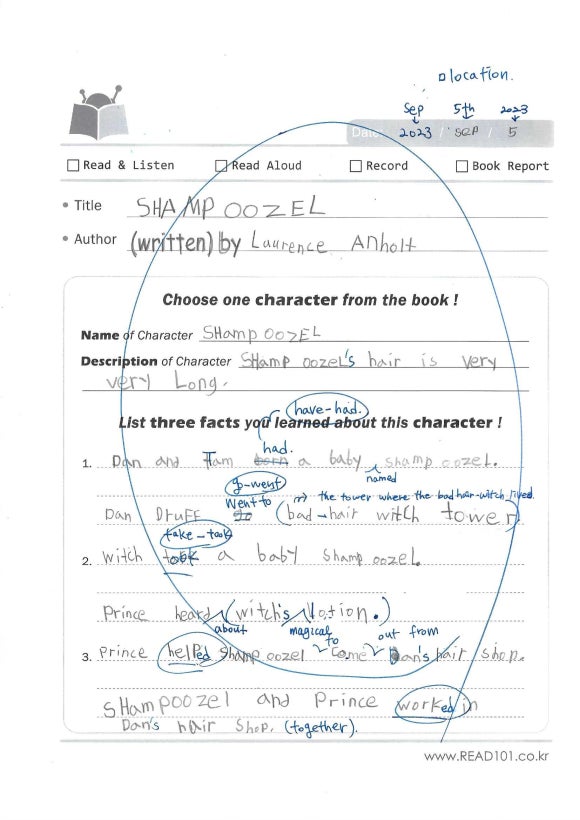 □ location.
Sep 5th 2023
Date 2023 / sep / 5
Read & Listen Read Aloud Record Book Report
• Title SHAMP OOZEL
• Author (written) by Laurence Anholt
Choose one character from the book !
Name of Character SHamp oozEL
Description of Character SHamp oozel's hair is very
very Long.
have-had.
List three facts you learned about this character !
had.
1. Dan and Tam born a baby shamp oozel.
named
go-went
went to ⇒ the tower where the bad hair-witch lived.
Dan Druff go (bad-hair witch tower)
take-took
2. witch took a baby shamp oozel.
Prince heard (witch's lotion.)
about magical to out from
3. Prince helped shamp oozel come Dan's hair shop.
SHampoozel and Prince worked in
Dan's hair shop. (together).
www.READ101.co.kr